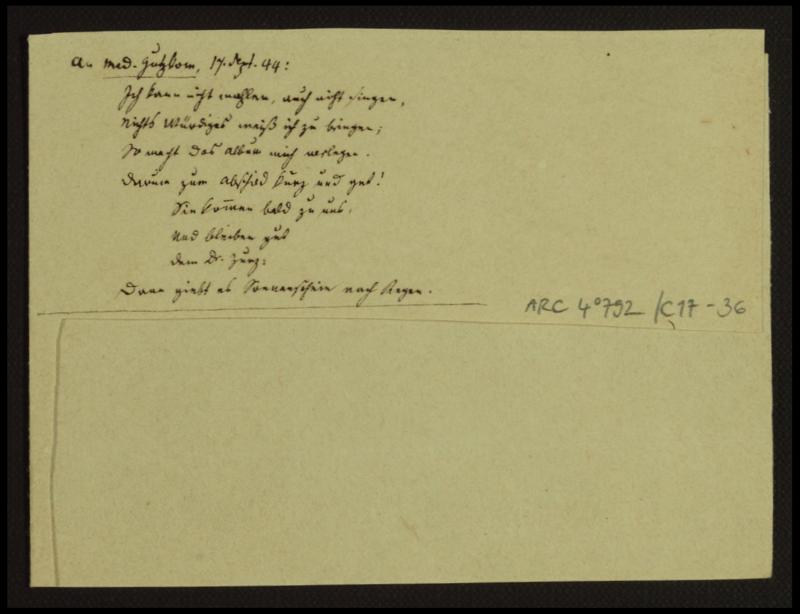 An Mad. Gutzkow, 17. Sept. 44:
Ich kann nicht mahlen, auch nicht singen,
Nichts Würdiges weiß ich zu bringen;
So macht das Album mich verlegen.
Darum zum Abschied kurz und gut!
Sie kommen bald zu uns,
Und bleiben gut
dem Dr. Zunz:
Dann giebt es Sonnenschein nach Regen.
ARC 4° 792 /C17-36